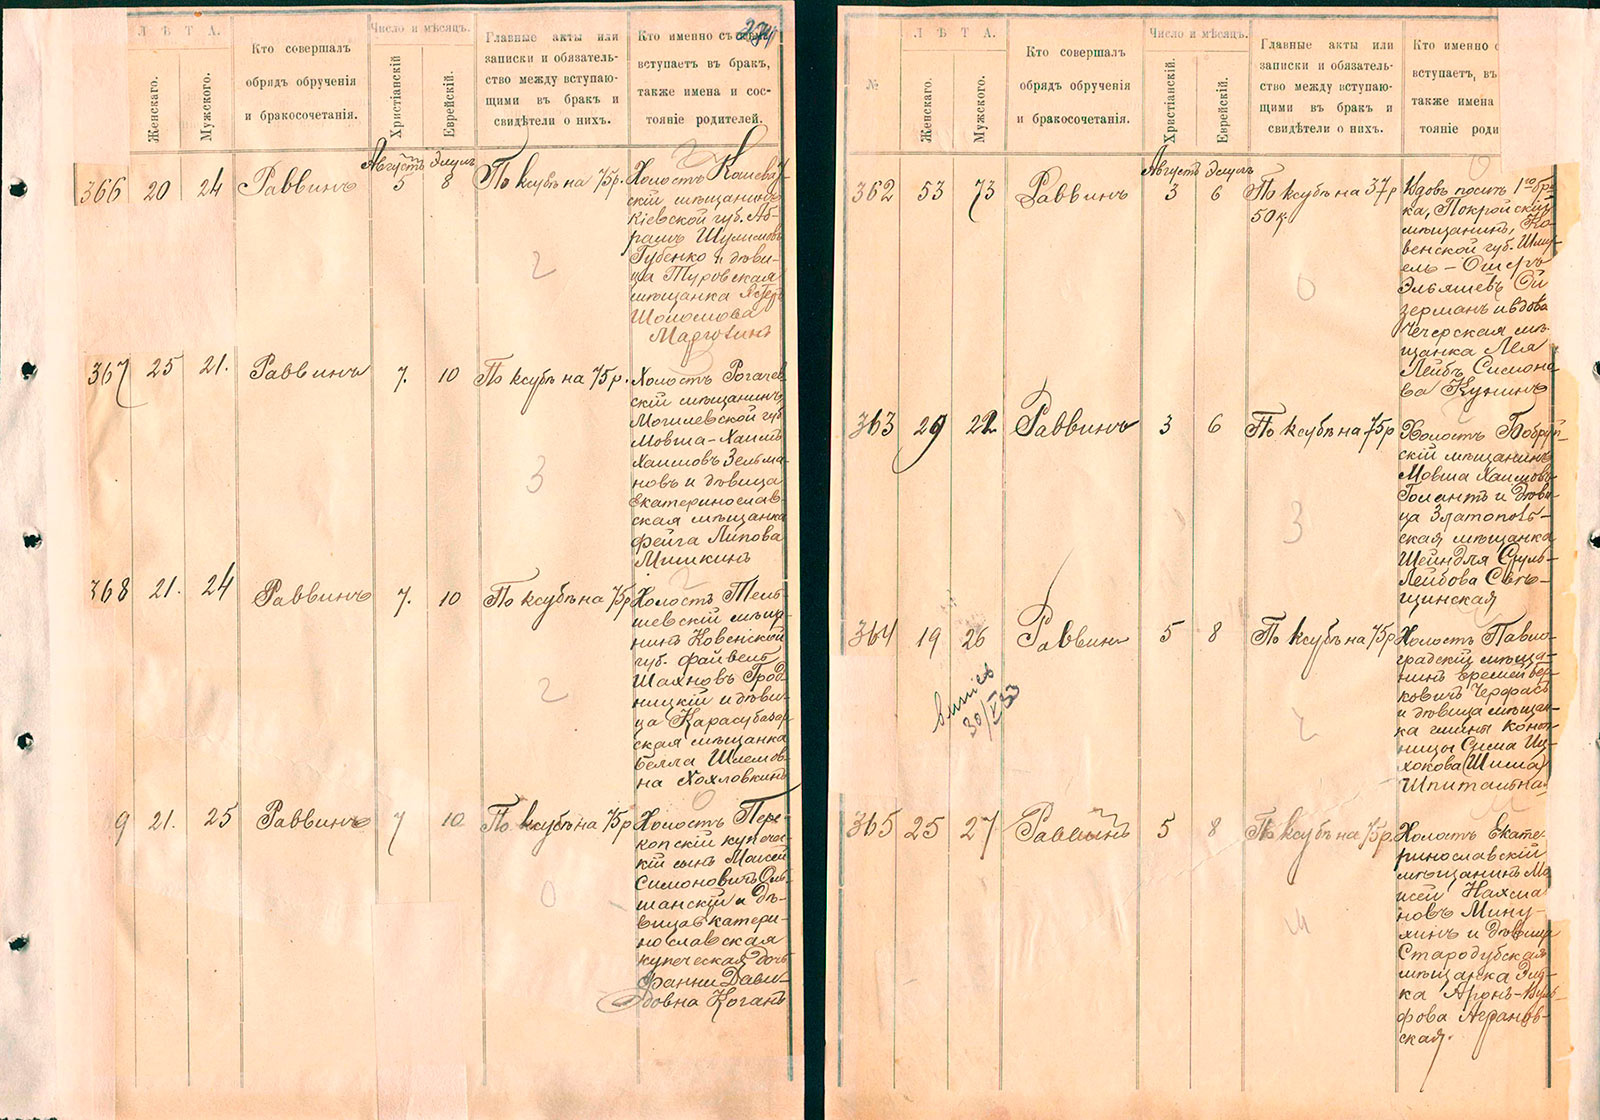 274
Л Ѣ Т А.
Женскаго.
Мужского.
Кто совершалъ
обрядъ обрученія
и бракосочетанія.
Число и мѣсяцъ.
Христіанскій
Еврейскій.
Главные акты или
записки и обязатель-
ство между вступаю-
щими въ бракъ и
свидѣтели о нихъ.
Кто именно съ
вступаетъ въ бракъ,
также имена и сос-
тояніе родителей.
Августъ Элулъ
366 20 24 Раввинъ 5 8 По ксубѣ на 75 р.
Холостъ Каневъ
скій мѣщанинъ
Кіевской губ. Аб-
рамъ Шулимовъ
Губенко и дѣви-
ца Туровская
мѣщанка Эстеръ
Шоломова
Марголинъ
2
367 25 21. Раввинъ 7. 10 По ксубѣ на 75 р.
Холостъ Рогачев
скій мѣщанинъ
Могилевской губ
Мовша-Хаимъ
Хаимовъ Зельма-
новъ и дѣвица
Екатеринослав-
ская мѣщанка
Фейга Липова
Мишкинъ
3
368 21. 24 Раввинъ 7. 10 По ксубѣ на 75 р
Холостъ Тель
шевскій мѣща
нинъ Ковенской
губ. Файвель
Шахновъ Грод
ницкій и дѣви-
ца Карасубазар
ская мѣщанка
Белла Шлемов-
на Хохловкинъ
2
9 21. 25 Раввинъ 7 10 По ксубѣ на 75 р
Холостъ Пере-
копскій купечес-
кій сынъ Моисей
Симоновичъ Оль-
шанскій и дѣ-
вица Екатери-
нославская
купеческая дочь
Фанни Дави-
довна Коганъ
0
№
Л Ѣ Т А.
Женскаго.
Мужского.
Кто совершалъ
обрядъ обрученія
и бракосочетанія.
Число и мѣсяцъ.
Христіанскій.
Еврейскій.
Главные акты или
записки и обязатель-
ство между вступаю-
щими въ бракъ и
свидѣтели о нихъ.
Кто именно с
вступаетъ, въ
также имена
тояніе роди
Августъ Элулъ
362 53 73 Раввинъ 3 6 По ксубѣ на 37 р
50 к.
Вдовъ послѣ 1го бра
ка, Покройскій
мѣщанинъ, Ко-
венской губ. Шму-
ель-Ошеръ
Эльяшевъ
зерманъ и вдова
Чечерская мѣ-
щанка Лея
Лейбъ Симоно
ва Кунинъ
0
363 29 22 Раввинъ 3 6 По ксубѣ на 75 р
Холостъ Бобруй-
скій мѣщанинъ
Мовша Хаимовъ
Голантъ и дѣви
ца Златополь-
ская мѣщанка
Шейндля Сруль-
Лейбова Свѣ-
щинская
3
364 19 26 Раввин 5 8 По ксубѣ на 75 р
Холостъ Павло-
градскій мѣща-
нинъ Еремей Бер-
ковичъ Черкасъ
и дѣвица мѣщан-
ка гмины Конот-
ницы Сима Иц-
хокова (Шиша)
Шпитальна
2
30/V 33
365 25 27 Раввинъ 5 8 По ксубѣ на 75 р.
Холостъ Екате-
ринославскій
мѣщанинъ Мо
исей Нахма
новъ Мину-
хинъ и дѣвица
Стародубская
мѣщанка Эйд-
ка Аронъ-Вуль-
фова Агранов-
ская.
4